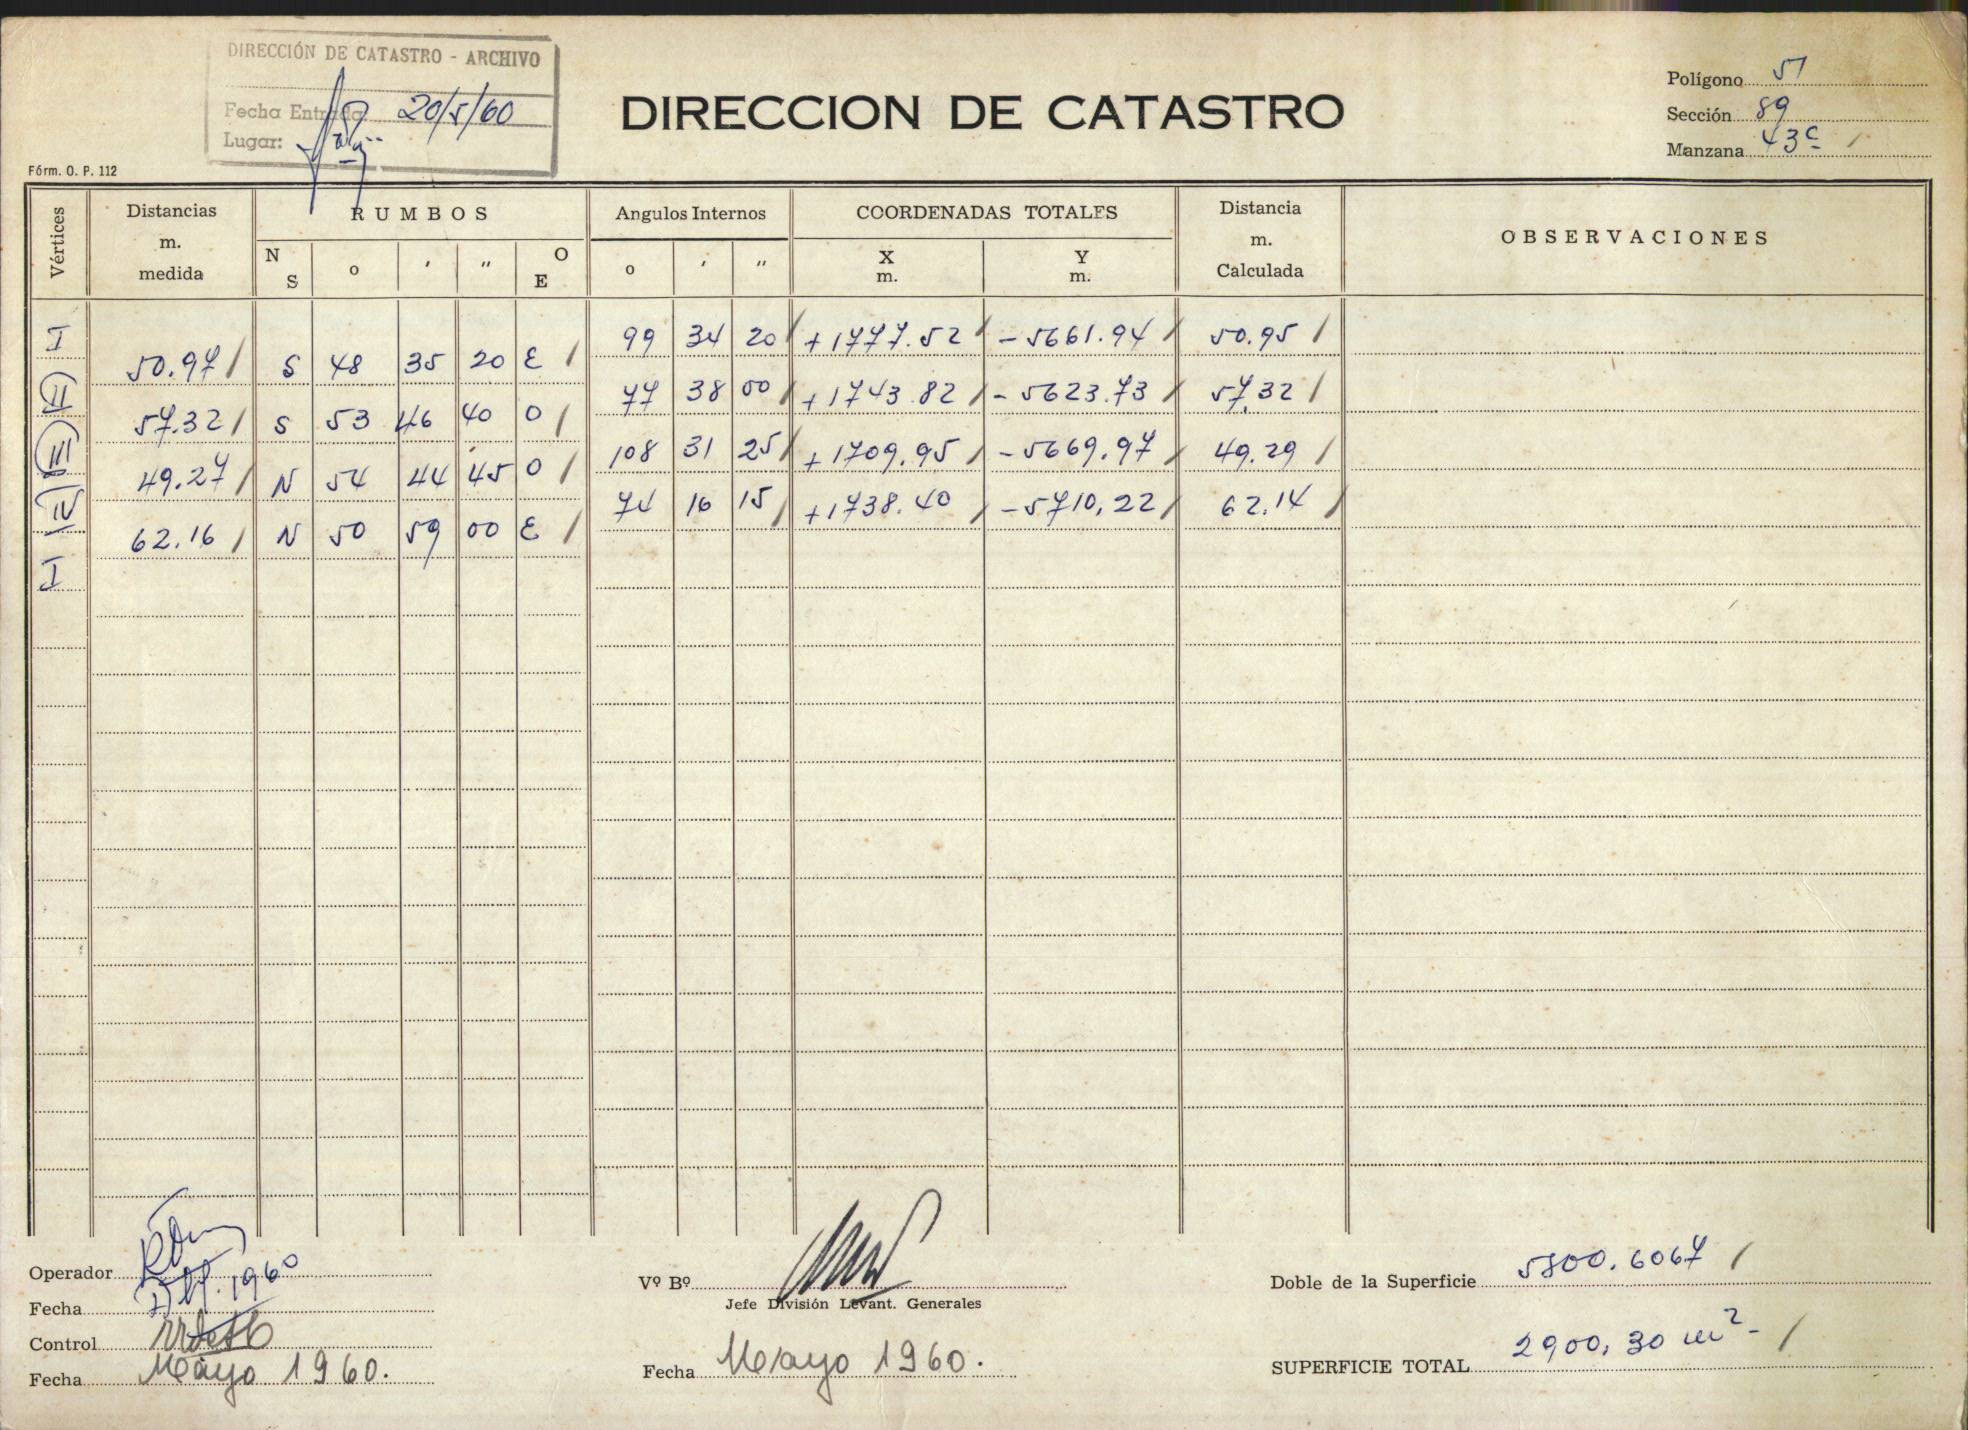 DIRECCIÓN DE CATASTRO - ARCHIVO
Fecha Entrada 20/5/60
Lugar:
DIRECCION DE CATASTRO
Polígono 51
Sección 89
Manzana 43c
Fórm. O. P. 112
Vértices
Distancias m. medida
RUMBOS
N S o ' '' O E
Angulos Internos
o ' ''
COORDENADAS TOTALES
X m.
Y m.
Distancia m. Calculada
OBSERVACIONES
I 99 34 20 +1777.52 -5661.94 50.95
50.97 S 48 35 20 E
II 77 38 00 +1743.82 -5623.73 57.32
57.32 S 53 46 40 O
III 108 31 25 +1709.95 -5669.97 49.29
49.27 N 54 44 45 O
IV 74 16 15 +1738.40 -5710,22 62.14
62.16 N 50 59 00 E
I
Operador
Fecha 1960
Control
Fecha Mayo 1960.
Vº Bº
Jefe División Levant. Generales
Fecha Mayo 1960.
Doble de la Superficie 5800.6067
SUPERFICIE TOTAL 2900,30 m2-